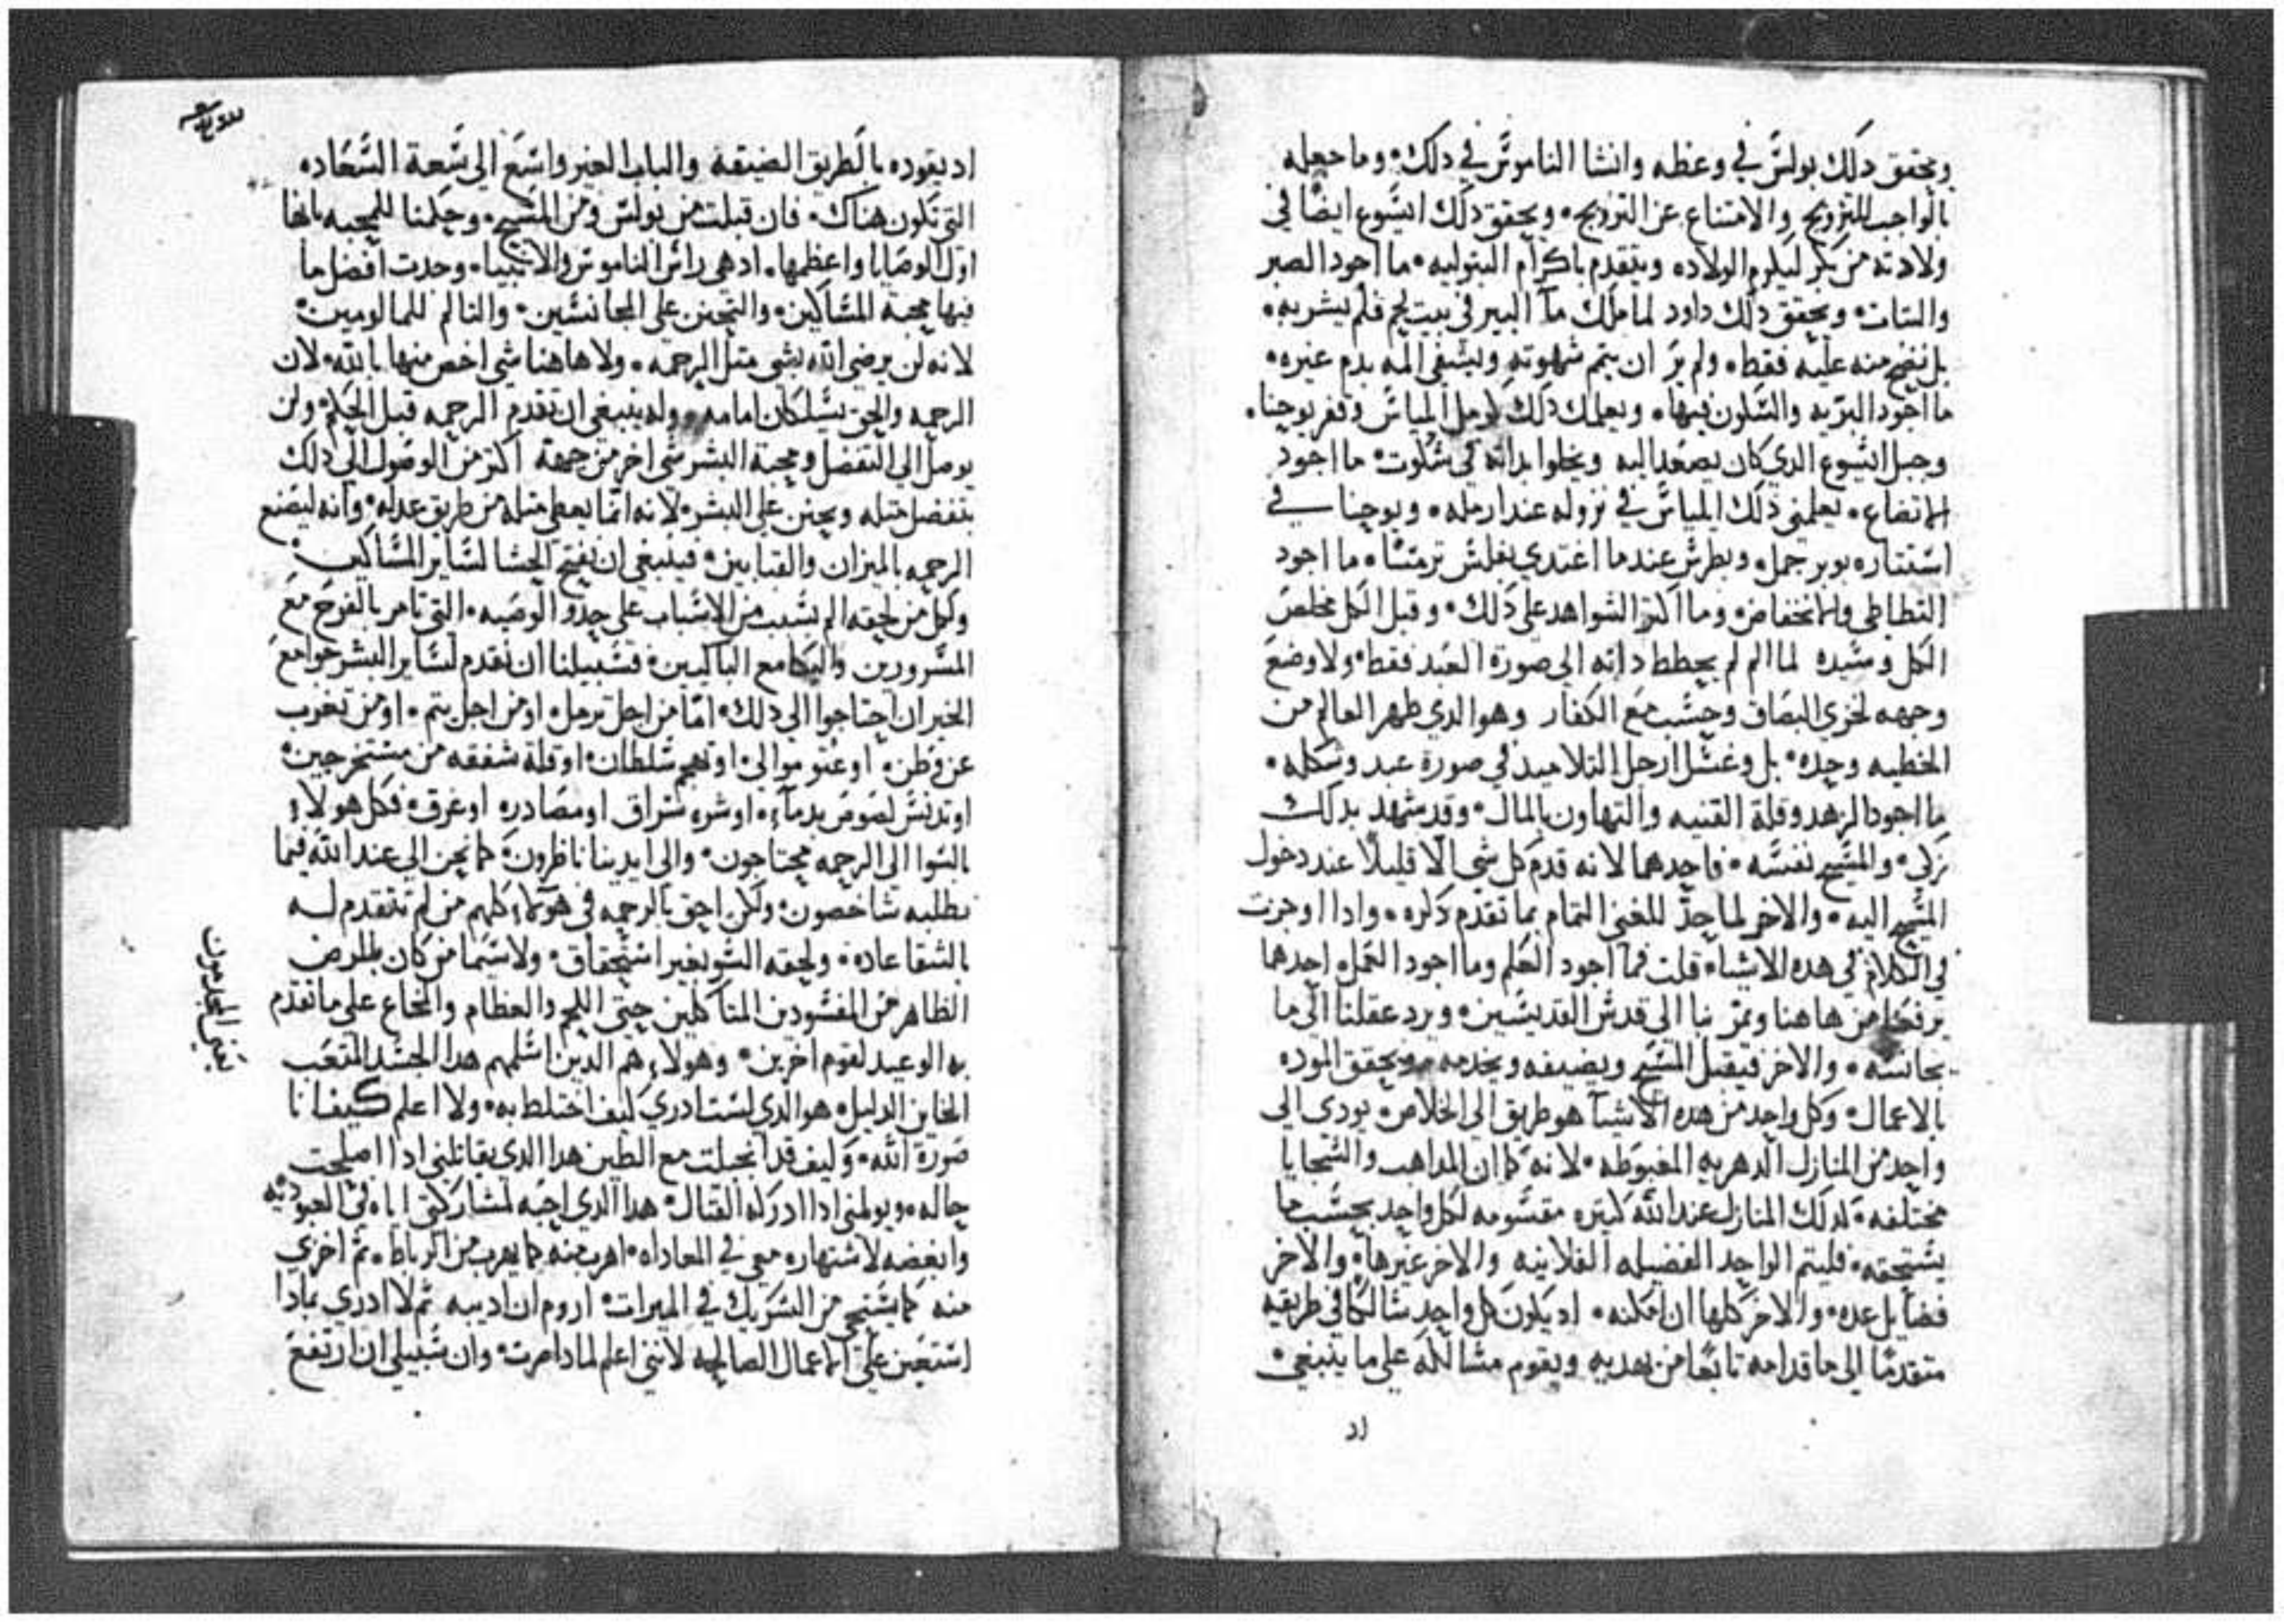 ويحقق دلك بولس في وعظه وانشا الناموس في دلك وما جعله
بالواجب للتزويج والامتناع عن التزويج ويحقق دلك ايسوع ايضا في
ولادته من بكر ليكرم الولاده ويتقدم باكرام البتوليه ما اجود الصبر
والتبات ويحقق دلك داود لما ملك مآ البير في بيت لحم فلم يشربه
بل نضح منه عليه فقط ولم ير ان يتم شهوته ويشفي المه بدم غيره
ما اجود البريه والسكون فيها ويعلمك دلك كرمل اليـاس وقفر يوحنا
وجبل ايسوع الدي كان يصعد اليه ويخلوا بداته في سكوت ما اجود
الاتضاع يعلمني دلك الياس في نزوله عند ارمله ويوحنا في
استتاره بوبر جمل وبطرس عندما اغتدي بفلس ترمسا ما اجود
التطاطي والانخفاض وما اكتر الشواهد على دلك وقبل الكل مخلص
الكل وسيده لما لم يحطط داته الى صورة العبد فقط ولا وضع
وجهه لخزي البصاق وحسب مع الكفار وهو الدي طهر العالم من
الخطيه وحده بل وغسل ارجل التلاميد في صورة عبد وشكله
ما اجود الزهد وقلة القنيه والتهاون بالمال وقد شهد بدلك
زكى والمسيح نفسه فاحدهما لانه قدم كل شي الا قليلا عند دخول
المسيح اليه والاخر لما حد للغني التمام بما تقدم دكره وادا اوجزت
في الكلام في هده الاشياء قلت فما اجود العلم وما اجود العمل احدهما
يرفعنا من هاهنا ويمر بنا الى قدس القديسين ويرد عقلنا الى ما
يجانسه والاخر فيقبل المسيح ويضيفه ويخدمه ويحقق الموده
بالاعمال وكل واحد من هده الاشيآ هو طريق الى الخلاص يودى الى
واحد من المنازل الدهريه المغبوطه لانه كما ان المداهب والسجايا
مختلفه كدلك المنازل عند الله كتيره مقسومه لكل واحد بحسب ما
يستحقه فليتم الواحد الفضيله الفلانيه والاخر غيرها والاخر
فضايل عده والاخر كلها ان امكنه اد يكون كل واحد سالكا في طريقه
متقدما الى ما قدامه تابعا من يهديه ويقوم مسالكه على ما ينبغي
اد
اد يقوده بالطريق الضيقه والباب العسر واسع الى سعة السعاده
التي تكون هناك فان قبلت من بولس ومن المسيح وحكمنا للمحبه بانها
اول الوصايا واعظمها اد هى راس الناموس والانبياء وجدت افضل ما
فيها محبة المساكين والتحنن على المجانسين والتالم للمالومين
لانه لن يرضى الله بشي متل الرحمه ولا هاهنا شي اخص منها بالله لان
الرحمه والحق يسلكان امامه وله ينبغي ان تقدم الرحمه قبل الحكم ولن
يوصل الى التفضل ومحبة البشر شي اخر من جهة اكتر من الوصول الى دلك
بتفضل متله ويحنن على البشر لانه انما يعطي متله من طريق عدله وانه ليضع
الرحمه بالميزان والقبابين فينبغي ان نفتح الحشا لساير المساكين
وكل من لحقه الم بسبب من الاسباب على حدو الوصيه التي تامر بالفرح مع
المسرورين والبكا مع الباكيين فسبيلنا ان نقدم لساير البشر جوامع
الخير ان احتاجوا الى دلك اما من اجل ترمل او من اجل يتم او من تغرب
عن وطن او عتو موالي او تهجم سلطان او قلة شفقه من مستخرجين
او تدنس لصوص بدماء او شره سراق او مصادره او غرق فكل هولاء
بالسوا الى الرحمه محتاجون والى ايدينا ناظرون كما نحن الى عند الله فيما
نطلبه شاخصون ولكن احق بالرحمه في هولاء كلهم من لم تتقدم له
بالشقا عاده ولحقه السو بغير استحقاق ولا سيما من كان بالمرض
الظاهر من المفسودين المتاكلين حتى اللحم والعظام والمخاع على ما تقدم
به الوعيد لقوم اخرين وهولاء هم الدين اسلمهم هدا الجسد المتعب
الخاين الدليل هو الدي لست ادري كيف اختلط به ولا اعلم كيف انا
صورة الله وكيف قد انجبلت مع الطين هدا الدي يقاتلني ادا اصلحت
حاله ويولمني ادا ادركه القتال هدا الدي احبه لمشاركتي اياه في العبوديه
وابغضه لاشتهاره معي في المعاداه اهرب منه كما يهرب من الرباط ثم اخزي
منه كما يستحي من الشريك في الميرات اروم ان اديبه تم لا ادري بمادا
استعين على الاعمال الصالحه لانني اعلم لمادا صرت وان سبيلي ان ارتفع
يعني المجدمون